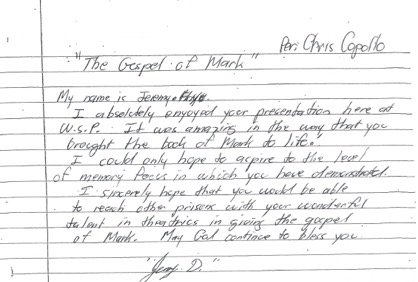 Peri Chris Capollo
"The Gospel of Mark"
My name is Jeremy
I absolutely enyoyed your presentation here at
W.S.P. It was amazing in the way that you
brought the book of Mark to life.
I could only hope to aspire to the level
of memory focus in which you have demonstrated.
I sincerely hope that you would be able
to reach other prisons with your wonderful
talent in theatrics in giving the gospel
of Mark. May God continue to bless you
"Jeremy D."